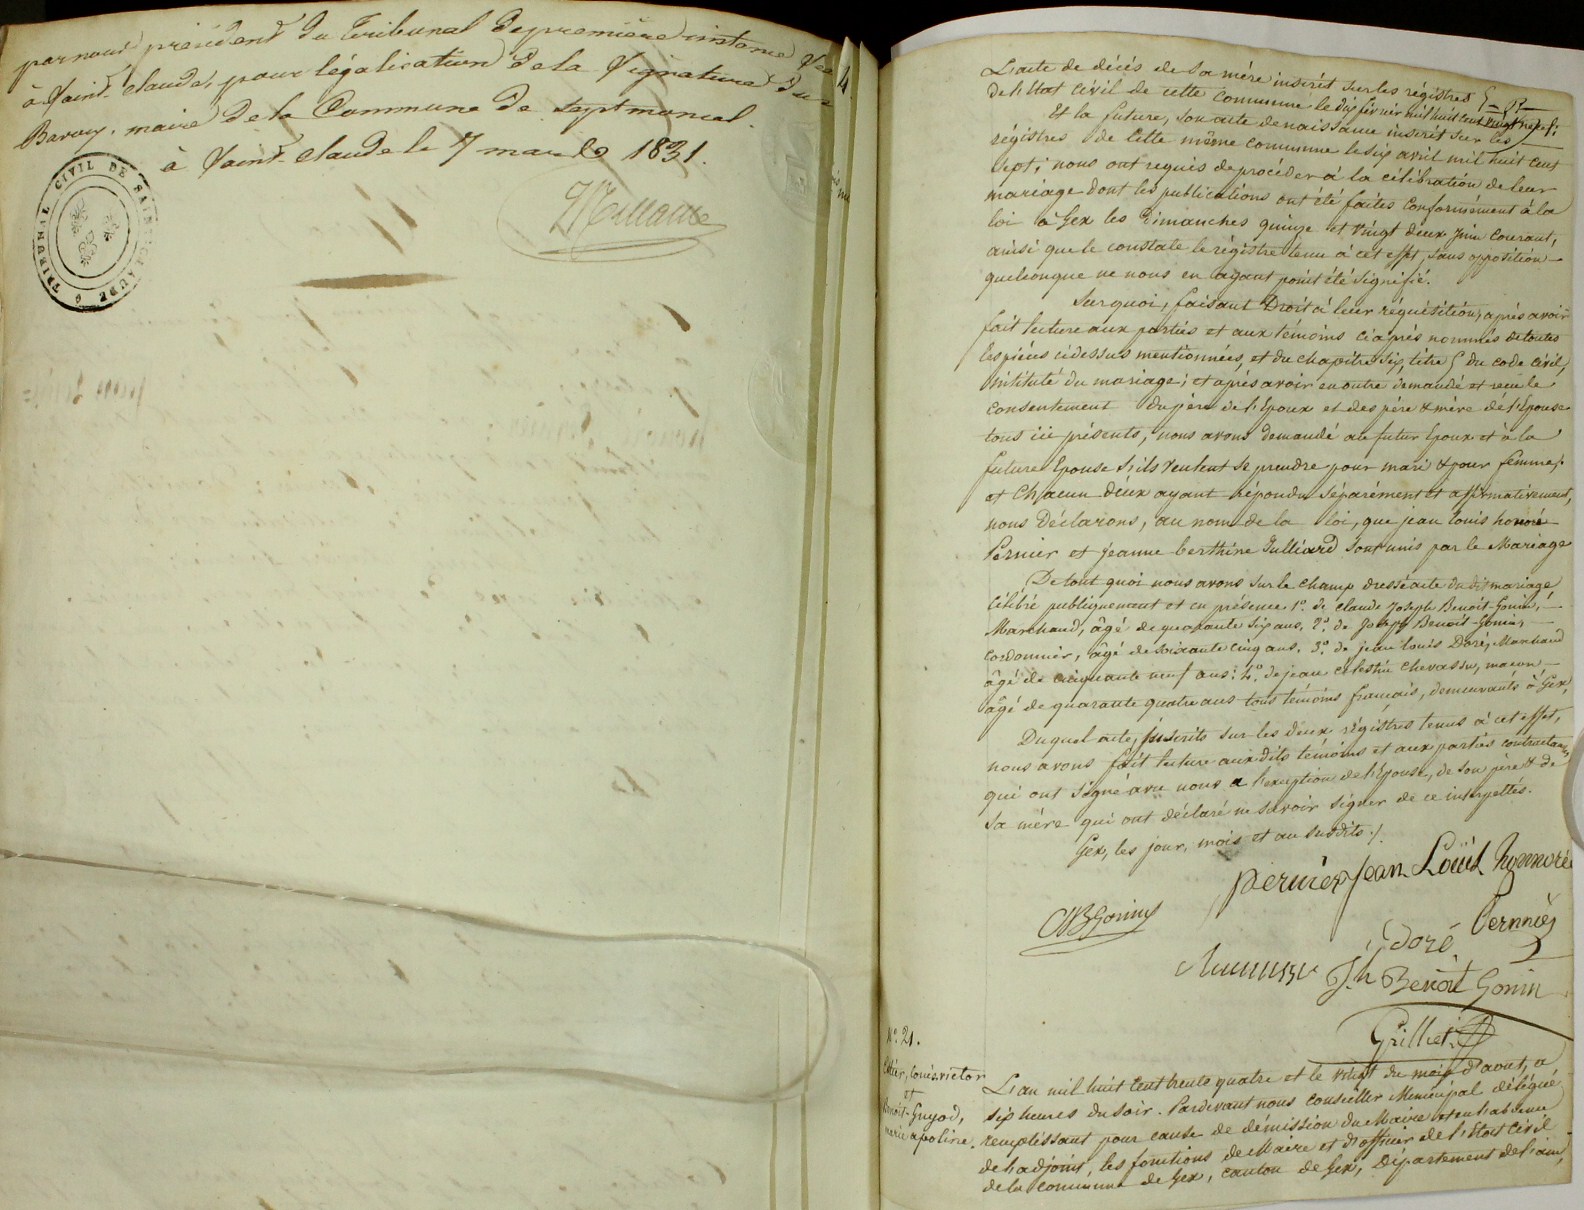 par nous président du Tribunal de première instance
à Saint-Claude, pour légalisation de la signature
Bavoux, maire de la Commune de Septmoncel.
à Saint-Claude le 7 mars 1831.
TRIBUNAL CIVIL DE SAINT CLAUDE
L'acte de décès de sa mère inscrit sur les régistres
de l'Etat civil de cette commune le dix février mil huit cent vingt neuf;
Et la future, son acte de naissance inscrit sur les
régistres de cette même commune le six avril mil huit cent
sept; nous ont requis de procéder à la célébration de leur
mariage dont les publications ont été faites conformément à la
loi à Gex les Dimanches quinze et vingt deux juin courant,
ainsi que le constate le régistre tenu à cet effet, sans opposition
quelconque ne nous en ayant point été signifié.
Sur quoi, faisant Droit à leur réquisition, après avoir
fait lecture aux parties et aux témoins ci après nommés de toutes
les pièces ci dessus mentionnées, et du chapitre six, titre 5 du code civil,
intitulé du mariage; et après avoir en outre demandé et reçu le
consentement du père de l'Epoux et des père & mère de l'Epouse
tous ici présents, nous avons demandé au futur Epoux et à la
future Epouse s'ils veulent se prendre pour mari & pour femme;
et chacun d'eux ayant répondu séparément et affirmativement,
nous Déclarons, au nom de la loi, que jean louis honoré
Pernier et jeanne berthine Julliard sont unis par le Mariage
De tout quoi nous avons sur le champ dressé acte du dit mariage
célébré publiquement et en présence 1º. de Claude Joseph Benoit-Gonin,
Marchand, âgé de quarante six ans. 2º. de Joseph Benoit-Gonin,
cordonnier, âgé de soixante cinq ans. 3º. de jean louis Doré, Marchand
âgé de cinquante neuf ans: 4º. de jean célestin Chevassu, macon
âgé de quarante quatre ans tous témoins français, demeurants à Gex,
Duquel acte, inscrits sur les deux régistres tenus à cet effet,
nous avons fait lecture aux dits témoins et aux parties contractantes
qui ont signé avec nous a l'exception de l'Epouse, de son père & de
sa mère qui ont déclaré ne savoir signer de ce interpellés.
Gex, les jour, mois et an susdits ./.
pernier Jean Louis honnoré
CJBGonin
Pernnier
Doré
Jh Benoit Gonin
Grilliet
Nº. 21.
louis victor
et
Benoit-Guyod,
marie apoline.
L'an mil huit cent trente quatre et le vingt du mois d'aout, a
six heures du soir. Pardevant nous conseiller Municipal délégué
remplissant pour cause de démission du Maire et en l'absence
de l'adjoint, les fonctions de Maire et d'officier de l'Etat civil
de la commune de Gex, canton de Gex, Département de l'ain,